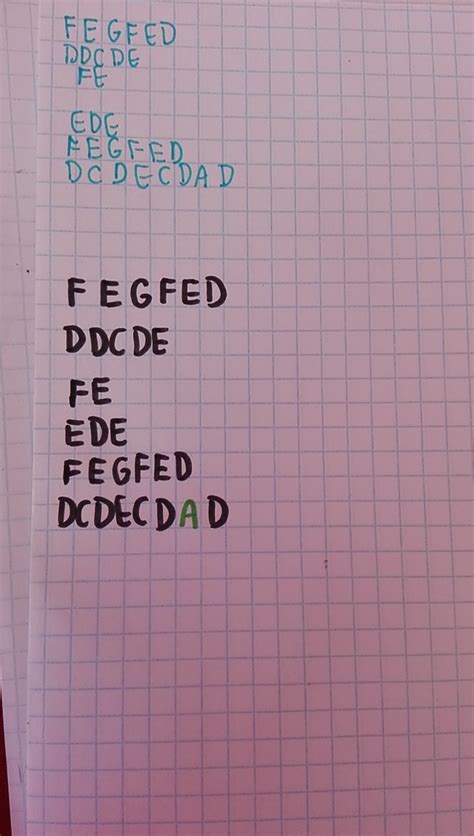 FEGFED
DDCDE
FE
EDE
FEGFED
DCDECDAD
FEGFED
DDCDE
FE
EDE
FEGFED
DCDECDAD